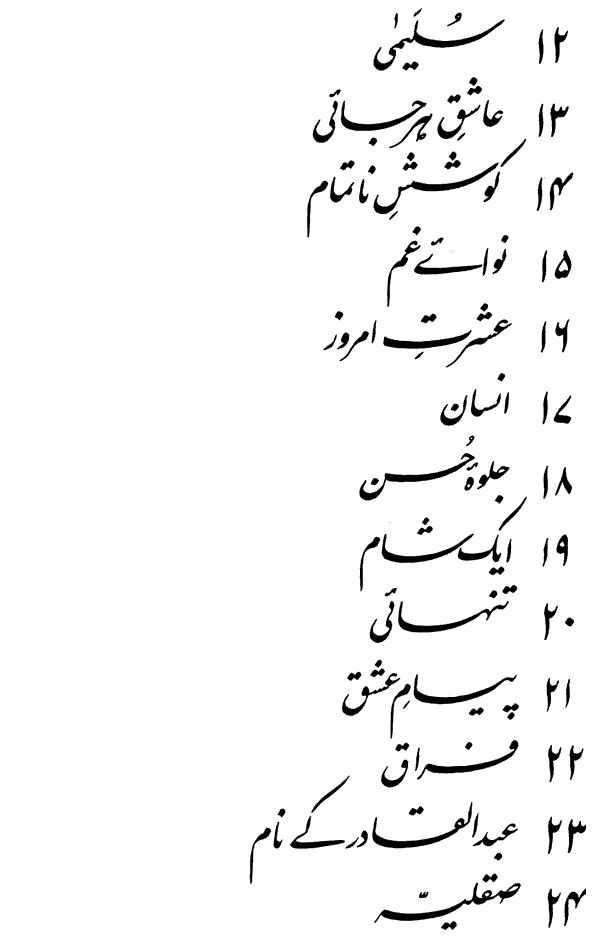 ۱۲ سُلَیمٰی
۱۳ عاشقِ ہرجائی
۱۴ کوششِ ناتمام
۱۵ نوائے غم
۱۶ عشرتِ امروز
۱۷ انسان
۱۸ جلوۂ حُسن
۱۹ ایک شام
۲۰ تنہائی
۲۱ پیامِ عشق
۲۲ فراق
۲۳ عبدالقادر کے نام
۲۴ صقلیّہ